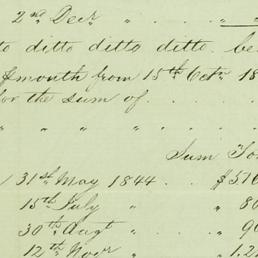 2nd Decr " "
ditto ditto ditto be
$ month from 15th Octr 18
for the sum of . . . .
" " " " "
Sum To
31st May 1844 .. $510
15th July " 80
30th Augt " 90
12th Novr " 1,2